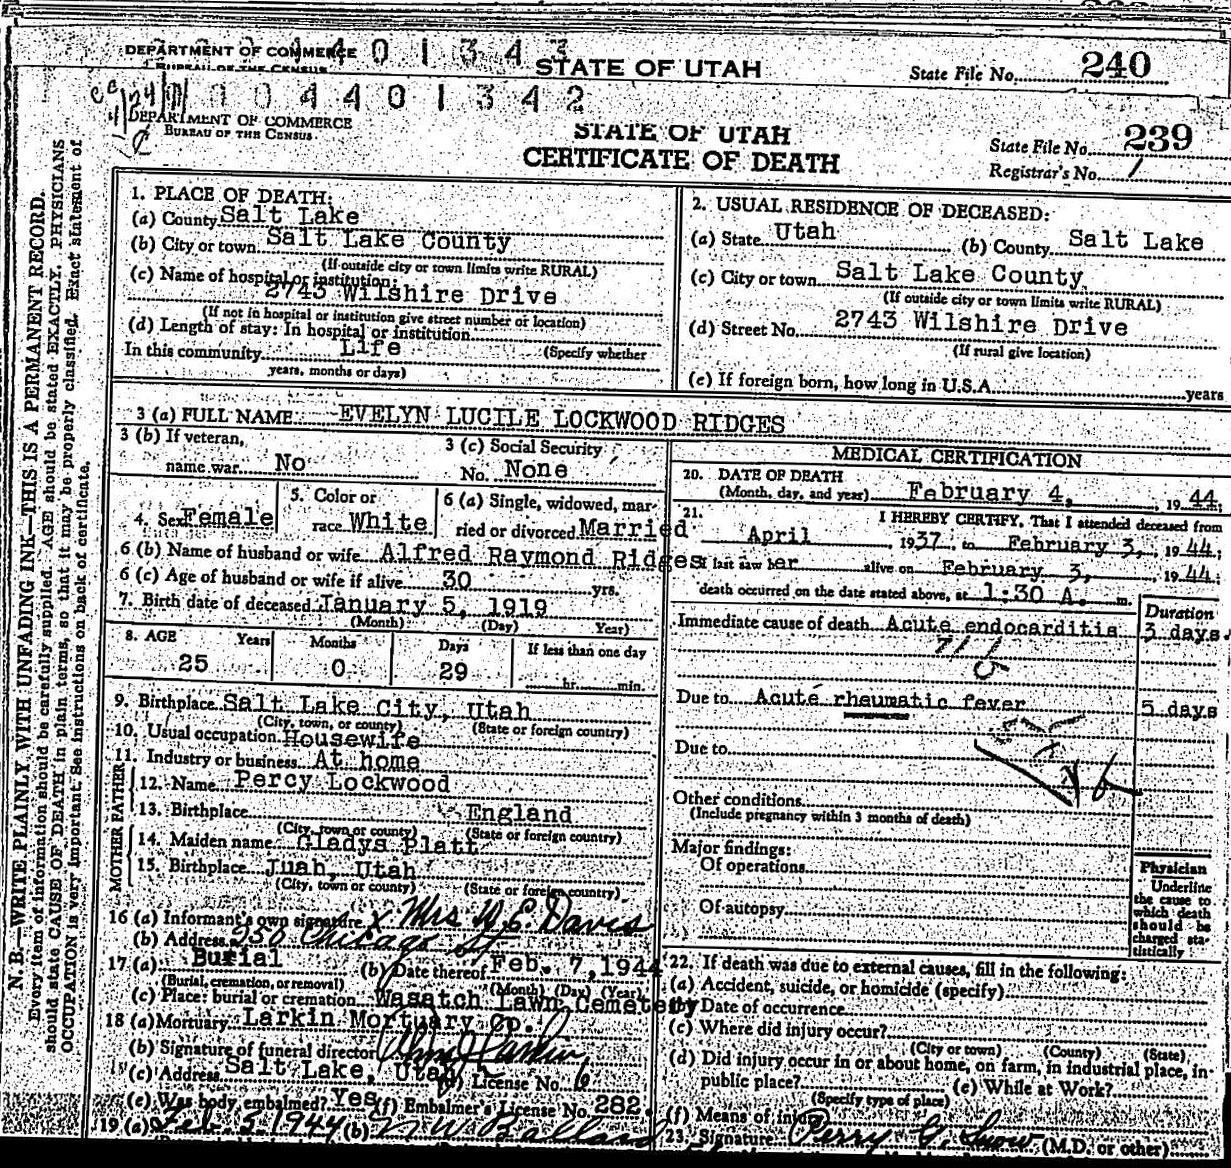 DEPARTMENT OF COMMERCE
BUREAU OF THE CENSUS
401343
STATE OF UTAH
State File No. 240
104401342
DEPARTMENT OF COMMERCE
BUREAU OF THE CENSUS
STATE OF UTAH
CERTIFICATE OF DEATH
State File No. 239
Registrar's No. 1
N. B.—WRITE PLAINLY, WITH UNFADING INK—THIS IS A PERMANENT RECORD.
Every item of information should be carefully supplied. AGE should be stated EXACTLY. PHYSICIANS
should state CAUSE OF DEATH in plain terms, so that it may be properly classified. Exact statement of
OCCUPATION is very important. See instructions on back of certificate.
1. PLACE OF DEATH:
(a) County Salt Lake
(b) City or town Salt Lake County
(If outside city or town limits write RURAL)
(c) Name of hospital or institution:
2743 Wilshire Drive
(If not in hospital or institution give street number or location)
(d) Length of stay: In hospital or institution
In this community Life (Specify whether
years, months or days)
2. USUAL RESIDENCE OF DECEASED:
(a) State Utah (b) County Salt Lake
(c) City or town Salt Lake County
(If outside city or town limits write RURAL)
(d) Street No. 2743 Wilshire Drive
(If rural give location)
(e) If foreign born, how long in U.S.A. years
3 (a) FULL NAME EVELYN LUCILE LOCKWOOD RIDGES
3 (b) If veteran, name war No
3 (c) Social Security No. None
4. Sex Female
5. Color or race White
6 (a) Single, widowed, married or divorced Married
6 (b) Name of husband or wife Alfred Raymond Ridges
6 (c) Age of husband or wife if alive 30 yrs.
7. Birth date of deceased January 5, 1919
(Month) (Day) Year)
8. AGE Years Months Days If less than one day
25 0 29 hr. min.
9. Birthplace Salt Lake City, Utah
(City, town, or county) (State or foreign country)
10. Usual occupation Housewife
11. Industry or business At home
FATHER
12. Name Percy Lockwood
13. Birthplace England
(City, town or county) (State or foreign country)
MOTHER
14. Maiden name Gladys Platt
15. Birthplace Juab, Utah
(City, town or county) (State or foreign country)
16 (a) Informant's own signature x Mrs W. E. Davis
(b) Address 250 Chicago St
17 (a) Burial (b) Date thereof Feb. 7, 1944
(Burial, cremation, or removal) (Month) (Day) (Year)
(c) Place: burial or cremation Wasatch Lawn Cemetery
18 (a) Mortuary Larkin Mortuary Co.
(b) Signature of funeral director
(c) Address Salt Lake, Utah (d) License No. 6
(e) Was body embalmed? Yes (f) Embalmer's License No. 282.
19 (a) Feb. 5 1944 (b) N W Ballard
MEDICAL CERTIFICATION
20. DATE OF DEATH
(Month, day, and year) February 4, 1944;
21. I HEREBY CERTIFY, That I attended deceased from
April, 1937, to February 3, 1944;
I last saw her alive on February 3, 1944;
death occurred on the date stated above, at 1:30 A. m.
Duration
Immediate cause of death Acute endocarditis 3 days.
Due to Acute rheumatic fever 5 days
Due to
Other conditions
(Include pregnancy within 3 months of death)
Major findings:
Of operations
Of autopsy
Physician
Underline
the cause to
which death
should be
charged sta-
tistically
22. If death was due to external causes, fill in the following:
(a) Accident, suicide, or homicide (specify)
(b) Date of occurrence
(c) Where did injury occur?
(City or town) (County) (State)
(d) Did injury occur in or about home, on farm, in industrial place, in
public place? (e) While at Work?
(Specify type of place)
(f) Means of injury
23. Signature Perry G. Snow (M.D. or other)